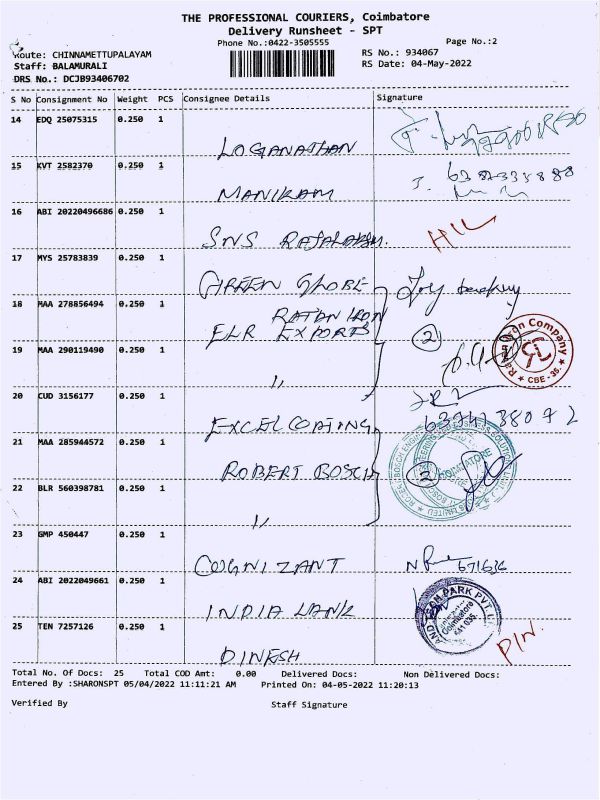 THE PROFESSIONAL COURIERS, Coimbatore
Delivery Runsheet - SPT
Phone No.:0422-3505555
Page No.:2
Route: CHINNAMETTUPALAYAM
RS No.: 934067
Staff: BALAMURALI
RS Date: 04-May-2022
DRS No.: DCJB93406702
S No Consignment No Weight PCS Consignee Details Signature
14 EDQ 25075315 0.250 1
LOGANATHAN
15 KVT 2582370 0.250 1
MANIKAM
16 ABI 20220496686 0.250 1
SNS RAJALAKSHMI.
17 MYS 25783839 0.250 1
GREEN GLOBE
18 MAA 278856494 0.250 1
RATAN IRON
ELR EXPORTS
2
19 MAA 290119490 0.250 1
"
Company
CBE-36
20 CUD 3156177 0.250 1
EXCEL COATING
21 MAA 285944572 0.250 1
ROBERT BOSCH
2
22 BLR 560398781 0.250 1
"
23 GMP 450447 0.250 1
COGNIZANT
24 ABI 2022049661 0.250 1
INDIA LANK
TECH PARK PVT
Coimbatore
641 035
25 TEN 7257126 0.250 1
PIN.
DINESH
Total No. Of Docs: 25 Total COD Amt: 0.00 Delivered Docs: Non Delivered Docs:
Entered By :SHARONSPT 05/04/2022 11:11:21 AM Printed On: 04-05-2022 11:20:13
Verified By Staff Signature